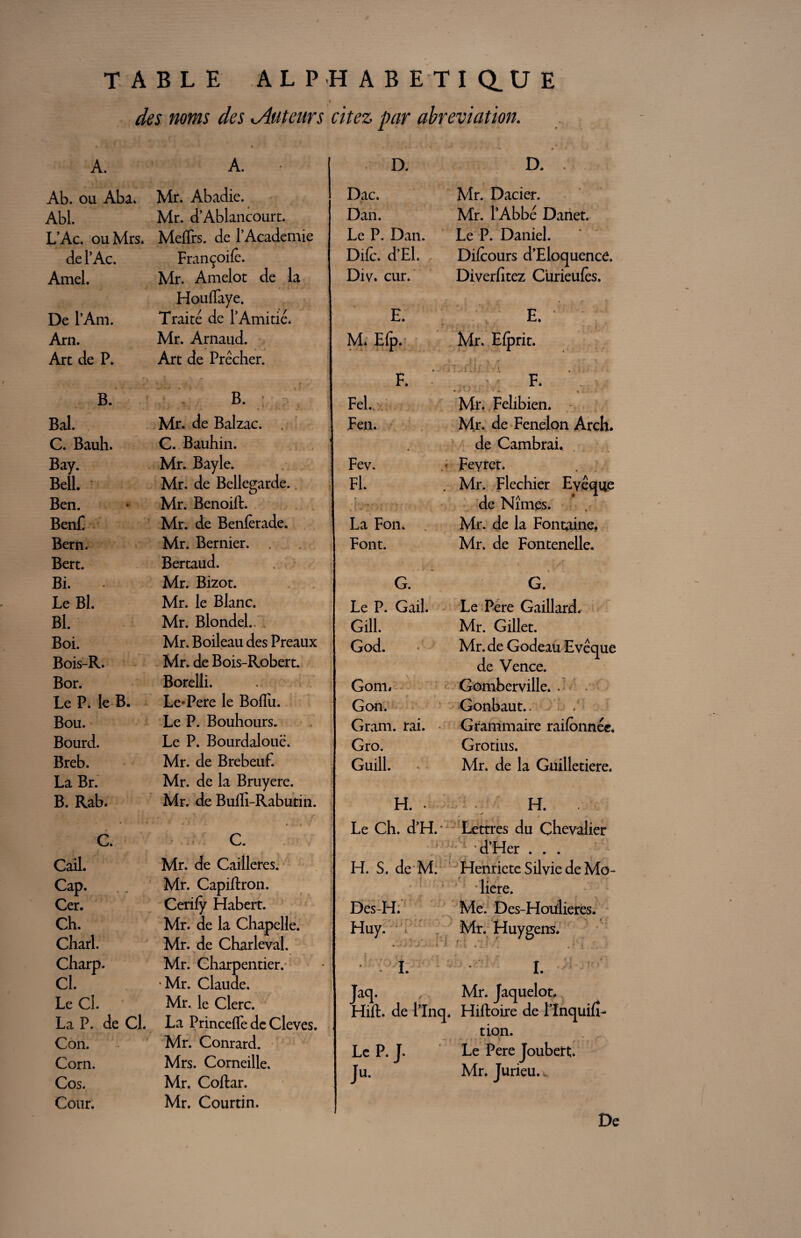 TABLE ALPHABETIQUE
des noms des Auteurs citez par abreviation.
A. A.
Ab. ou Aba. Mr. Abadie.
Abl. Mr. d'Ablancourt.
L'Ac. ou Mrs. Meſſrs. de l'Academie
de l'Ac. Françoiſe.
Amel. Mr. Amelot de la
Houſſaye.
De l'Am. Traité de l'Amitié.
Arn. Mr. Arnaud.
Art de P. Art de Prêcher.
B. B.
Bal. Mr. de Balzac.
C. Bauh. C. Bauhin.
Bay. Mr. Bayle.
Bell. Mr. de Bellegarde.
Ben. Mr. Benoiſt.
Benſ. Mr. de Benſerade.
Bern. Mr. Bernier.
Bert. Bertaud.
Bi. Mr. Bizot.
Le Bl. Mr. le Blanc.
Bl. Mr. Blondel.
Boi. Mr. Boileau des Preaux
Bois-R. Mr. de Bois-Robert.
Bor. Borelli.
Le P. le B. Le Pere le Boſſu.
Bou. Le P. Bouhours.
Bourd. Le P. Bourdalouë.
Breb. Mr. de Brebeuf.
La Br. Mr. de la Bruyere.
B. Rab. Mr. de Buſſi-Rabutin.
C. C.
Cail. Mr. de Cailleres.
Cap. Mr. Capiſtron.
Cer. Ceriſy Habert.
Ch. Mr. de la Chapelle.
Charl. Mr. de Charleval.
Charp. Mr. Charpentier.
Cl. Mr. Claude.
Le Cl. Mr. le Clerc.
La P. de Cl. La Princeſſe de Cleves.
Con. Mr. Conrard.
Corn. Mrs. Corneille.
Cos. Mr. Coſtar.
Cour. Mr. Courtin.
D. D.
Dac. Mr. Dacier.
Dan. Mr. l'Abbé Danet.
Le P. Dan. Le P. Daniel.
Diſc. d'El. Diſcours d'Eloquence.
Div. cur. Diverſitez Curieuſes.
E. E.
M. Eſp. Mr. Eſprit.
F. F.
Fel. Mr. Felibien.
Fen. Mr. de Fenelon Arch.
de Cambrai.
Fev. Fevret.
Fl. Mr. Flechier Evêque
de Nîmes.
La Fon. Mr. de la Fontaine.
Font. Mr. de Fontenelle.
G. G.
Le P. Gail. Le Pere Gaillard.
Gill. Mr. Gillet.
God. Mr. de Godeau Evêque
de Vence.
Gom. Gomberville.
Gon. Gonbaut.
Gram. rai. Grammaire raiſonnée.
Gro. Grotius.
Guill. Mr. de la Guilletiere.
H. H.
Le Ch. d'H. Lettres du Chevalier
d'Her . . .
H. S. de M. Henriete Silvie de Mo-
liere.
Des-H. Me. Des-Houlieres.
Huy. Mr. Huygens.
I. I.
Jaq. Mr. Jaquelot.
Hiſt. de l'Inq. Hiſtoire de l'Inquiſi-
tion.
Le P. J. Le Pere Joubert.
Ju. Mr. Jurieu.
De